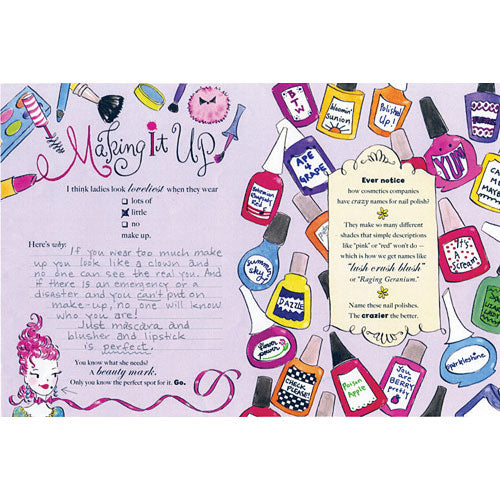 Making it Up
I think ladies look loveliest when they wear
lots of
little
no
make up.
Here's why: If you wear too much make
up you look like a clown and
no one can see the real you. And
if there is an emergency or a
disaster and you can't put on
make-up, no one will know
who you are!
Just mascara and
blusher and lipstick
is perfect.
You know what she needs?
A beauty mark.
Only you know the perfect spot for it. Go.
BTW
bloomin' sunion
Polished Up!
APE 4 GRAPE
YUM
Summer Sky
DAZZLE
It's A Scream
CHECK PLEASE!
Poison Apple
You are BERRY pretty
Sparkleshine
Ever notice
how cosmetics companies
have crazy names for nail polish?
They make so many different
shades that simple descriptions
like "pink" or "red" won't do —
which is how we get names like
"lush crush blush"
or "Raging Geranium."
Name these nail polishes.
The crazier the better.